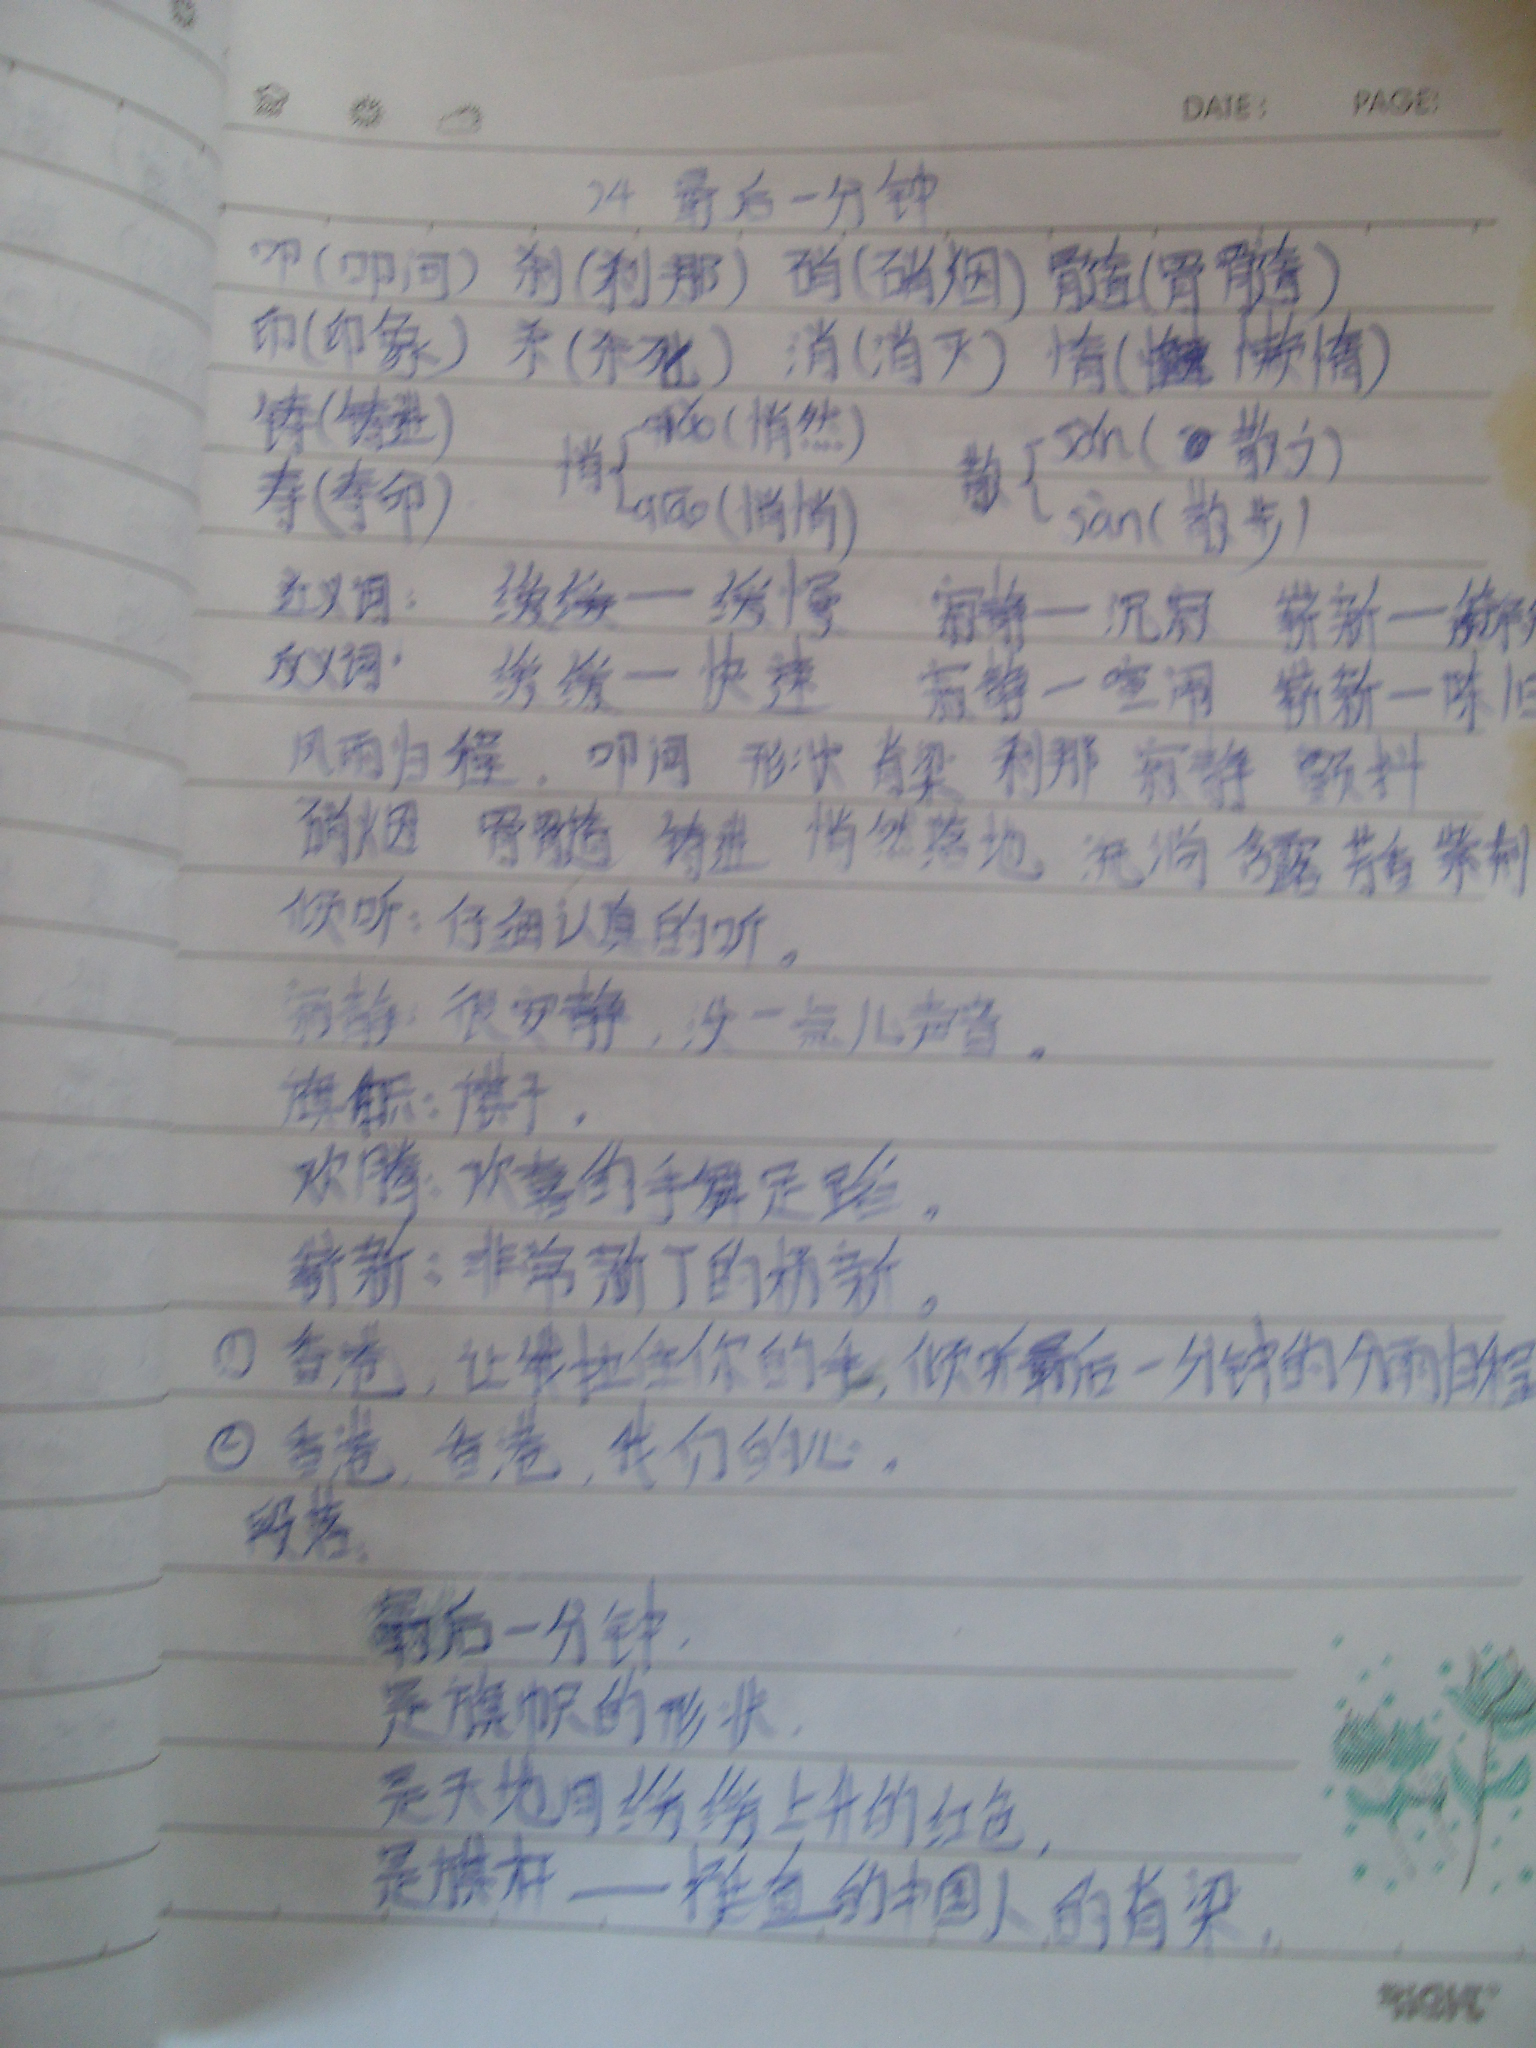 DATE: PAGE:
24 最后一分钟
叩(叩问) 刹(刹那) 硝(硝烟) 髓(骨髓)
印(印象) 杀(杀死) 消(消灭) 惰(懒惰)
铸(铸进) 悄 qiǎo(悄然) 散 sǎn(散文)
寿(寿命) qiāo(悄悄) sàn(散步)
近义词: 缓缓—缓慢 寂静—沉寂 崭新—
反义词: 缓缓—快速 寂静—喧闹 崭新—陈旧
风雨归程 叩问 形状 脊梁 刹那 寂静 颤抖
硝烟 骨髓 铸进 悄然落地 流淌 含露 芳香 紫荆
倾听:仔细认真的听。
寂静:很安静,没一点儿声音。
旗帜:旗子.
欢腾:欢喜的手舞足蹈。
崭新:非常新
① 香港,让我拉住你的手,倾听最后一分钟的风雨归程
② 香港,香港,我们的心.
段落:
最后一分钟.
是旗帜的形状.
是天地间缓缓上升的红色,
是旗杆——挺直的中国人的脊梁,